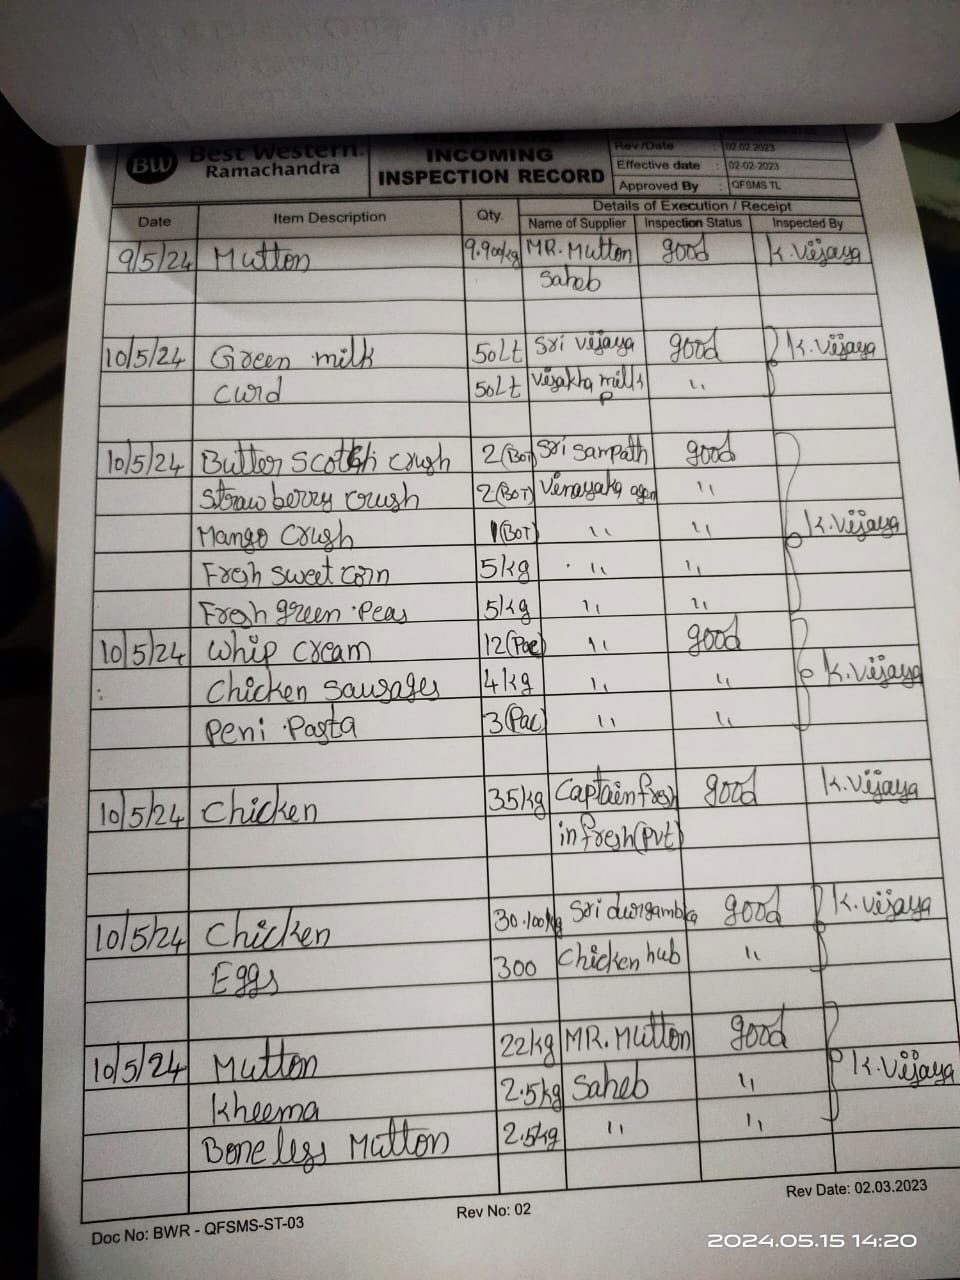 BW Best Western.
Ramachandra
INCOMING
INSPECTION RECORD
Rev /Date : 02.02.2023
Effective date : 02-02-2023
Approved By : QFSMS TL
Date Item Description Qty. Details of Execution / Receipt
Name of Supplier Inspection Status Inspected By
9/5/24 Mutton 9.900kg MR. Mutton good K. Vijaya
Saheb
10/5/24 Green milk 50Lt Sri vijaya good K. Vijaya
Curd 50Lt Visakha milk P 〃
10/5/24 Butter Scotch crush 2(Bot) Sri Sampath good
Strawberry crush 2(BOT) Vinayaka agen 〃
Mango Crush 1(BOT) 〃 〃 K. Vijaya
Fresh sweet corn 5kg 〃 〃
Fresh green Peas 5kg 〃 〃
10/5/24 Whip cream 12(Pac) 〃 good
: Chicken Sausages 4kg 〃 〃 K. Vijaya
Peni Pasta 3(Pac) 〃 〃
10/5/24 Chicken 35kg Captain fresh good K. Vijaya
infresh(Pvt)
10/5/24 Chicken 30.100kg Sri durgambka good K. Vijaya
Eggs 300 Chicken hub 〃
10/5/24 Mutton 22kg MR. Mutton good
Kheema 2.5kg Saheb 〃 K. Vijaya
Boneless Mutton 2.5kg 〃 〃
Doc No: BWR - QFSMS-ST-03 Rev No: 02 Rev Date: 02.03.2023
2024.05.15 14:20